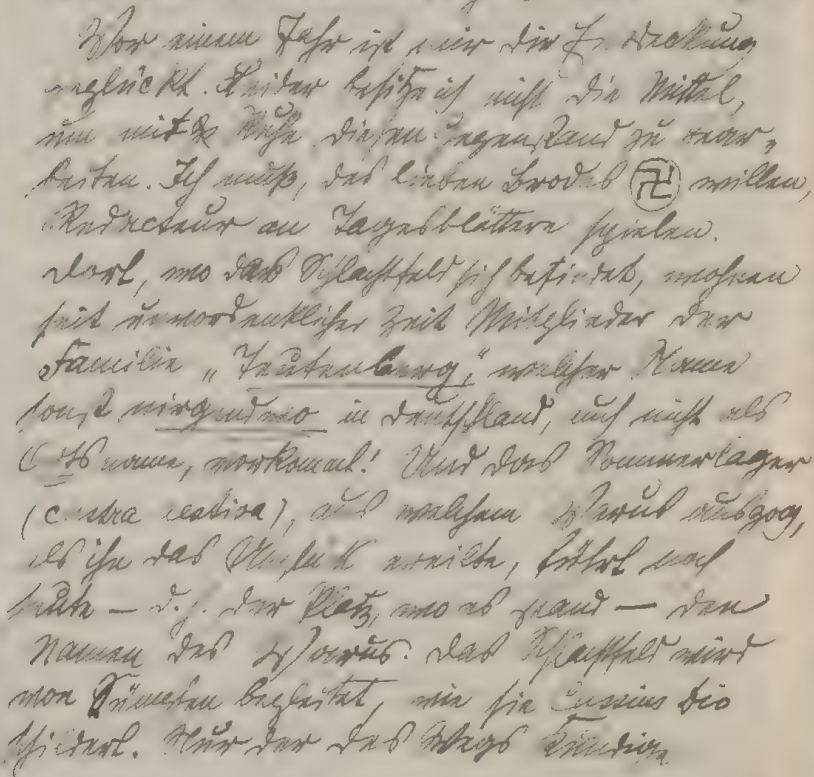 Vor einem Jahr ist mir die Entdeckung
geglückt. Leider besitze ich nicht die Mittel,
um mit Ruhe diesen Gegenstand zu bear-
beiten. Ich muß, des lieben Brodes 卐 willen,
Redacteur an Tagesblättern spielen.
Dort, wo das Schlachtfeld sich befindet, wohnen
seit unvordenklicher Zeit Mitglieder der
Familie „Teutenberg", welcher Name
sonst nirgendwo in Deutschland, auch nicht als
Ortsname, vorkommt! Und das Sommerlager
(castra aestiva), aus welchem Varus auszog,
als ihn das Unglück ereilte, führt noch
heute — d. h. der Platz, wo es stand — den
Namen des Varus. Das Schlachtfeld wird
von Sümpfen begleitet, wie sie Cassius Dio
schildert. Nur der des Wegs Kundige